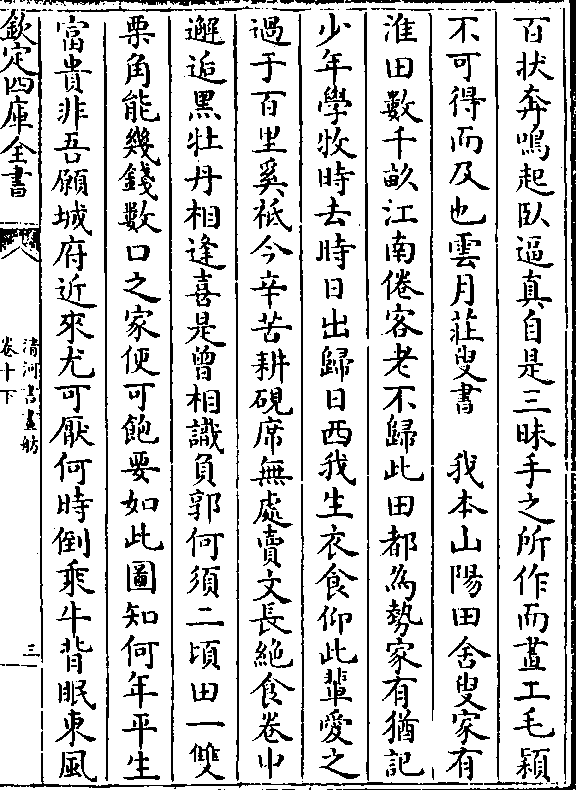 百狀奔鳴起臥逼真自是三昧手之所作而畫工毛穎
不可得而及也雲月莊叟書　我本山陽田舍叟家有
淮田數千畝江南倦客老不歸此田都為勢家有猶記
少年學牧時去時日出歸日西我生衣食仰此輩愛之
過于百里奚祗今辛苦耕硯席無處賣文長絶食卷中
邂逅黑牡丹相逢喜是曾相識負郭何須二頃田一雙
栗角能幾錢數口之家便可飽要如此圖知何年平生
富貴非吾願城府近來尤可厭何時倒乘牛背眠東風
欽定四庫全書
清河書畫舫
卷十下
三